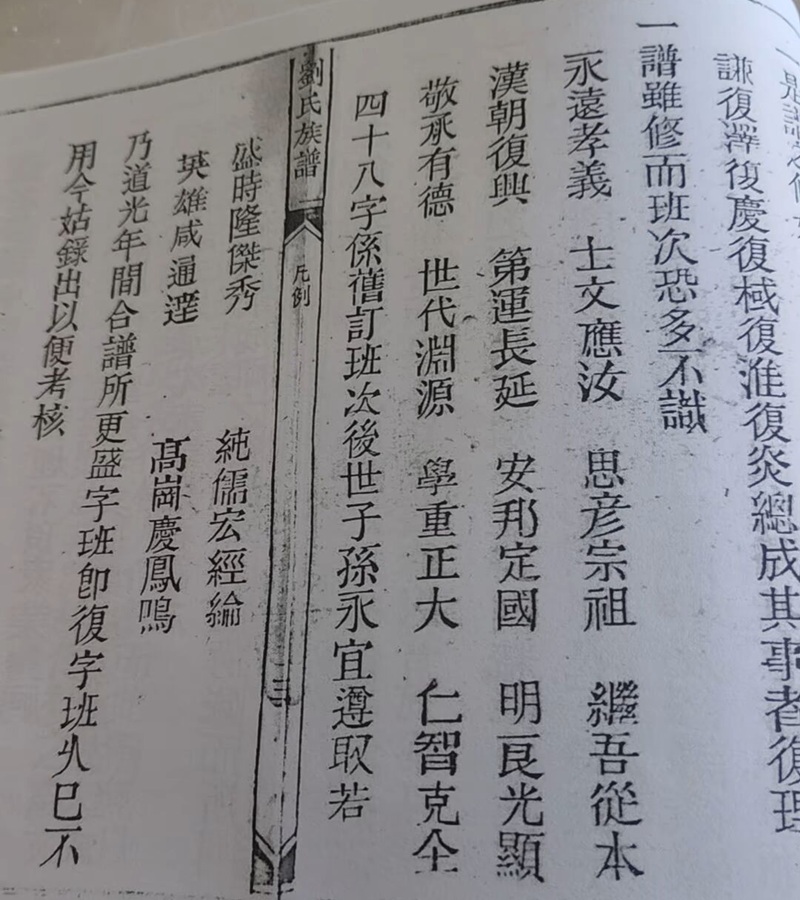 一是譜之修
謙復澤復慶復棫復淮復炎總成其事者復理
一譜雖修而班次恐多不識
永遠孝義 士文應汝 思彦宗祖 繼吾從本
漢朝復興 第運長延 安邦定國 明良光顯
敬承有德 世代淵源 學重正大 仁智克全
四十八字係舊訂班次後世子孫永宜遵取若
劉氏族譜 一 凡例 十三
盛時隆傑秀 純儒宏經綸
英雄咸通達 髙崗慶鳳鳴
乃道光年間合譜所更盛字班卽復字班乆已不
用今姑錄出以便考核